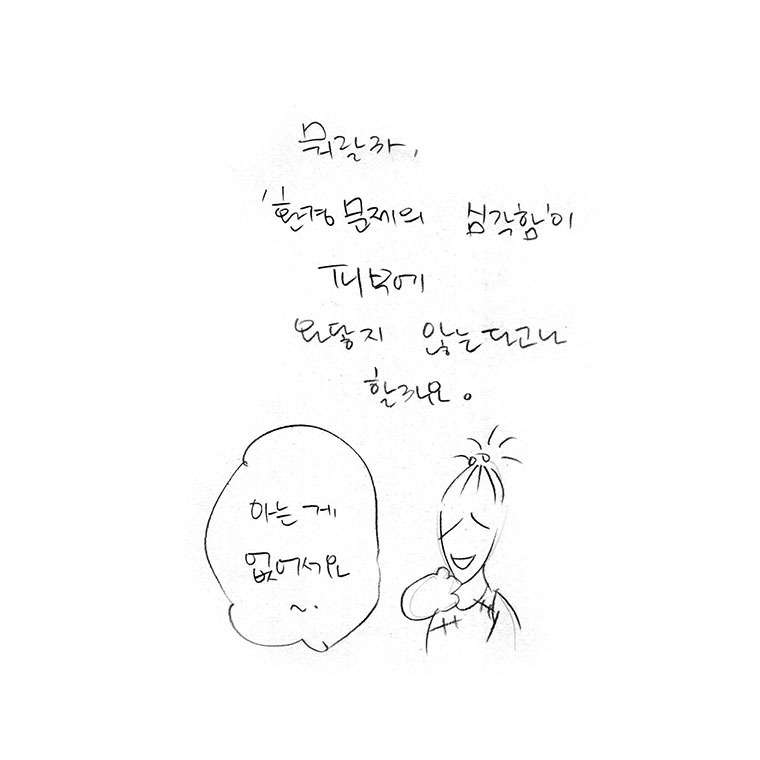 뭐랄까,
'환경문제의 심각함'이
피부에
와닿지 않는다고나
할까요。
아는 게
없어서요
~.